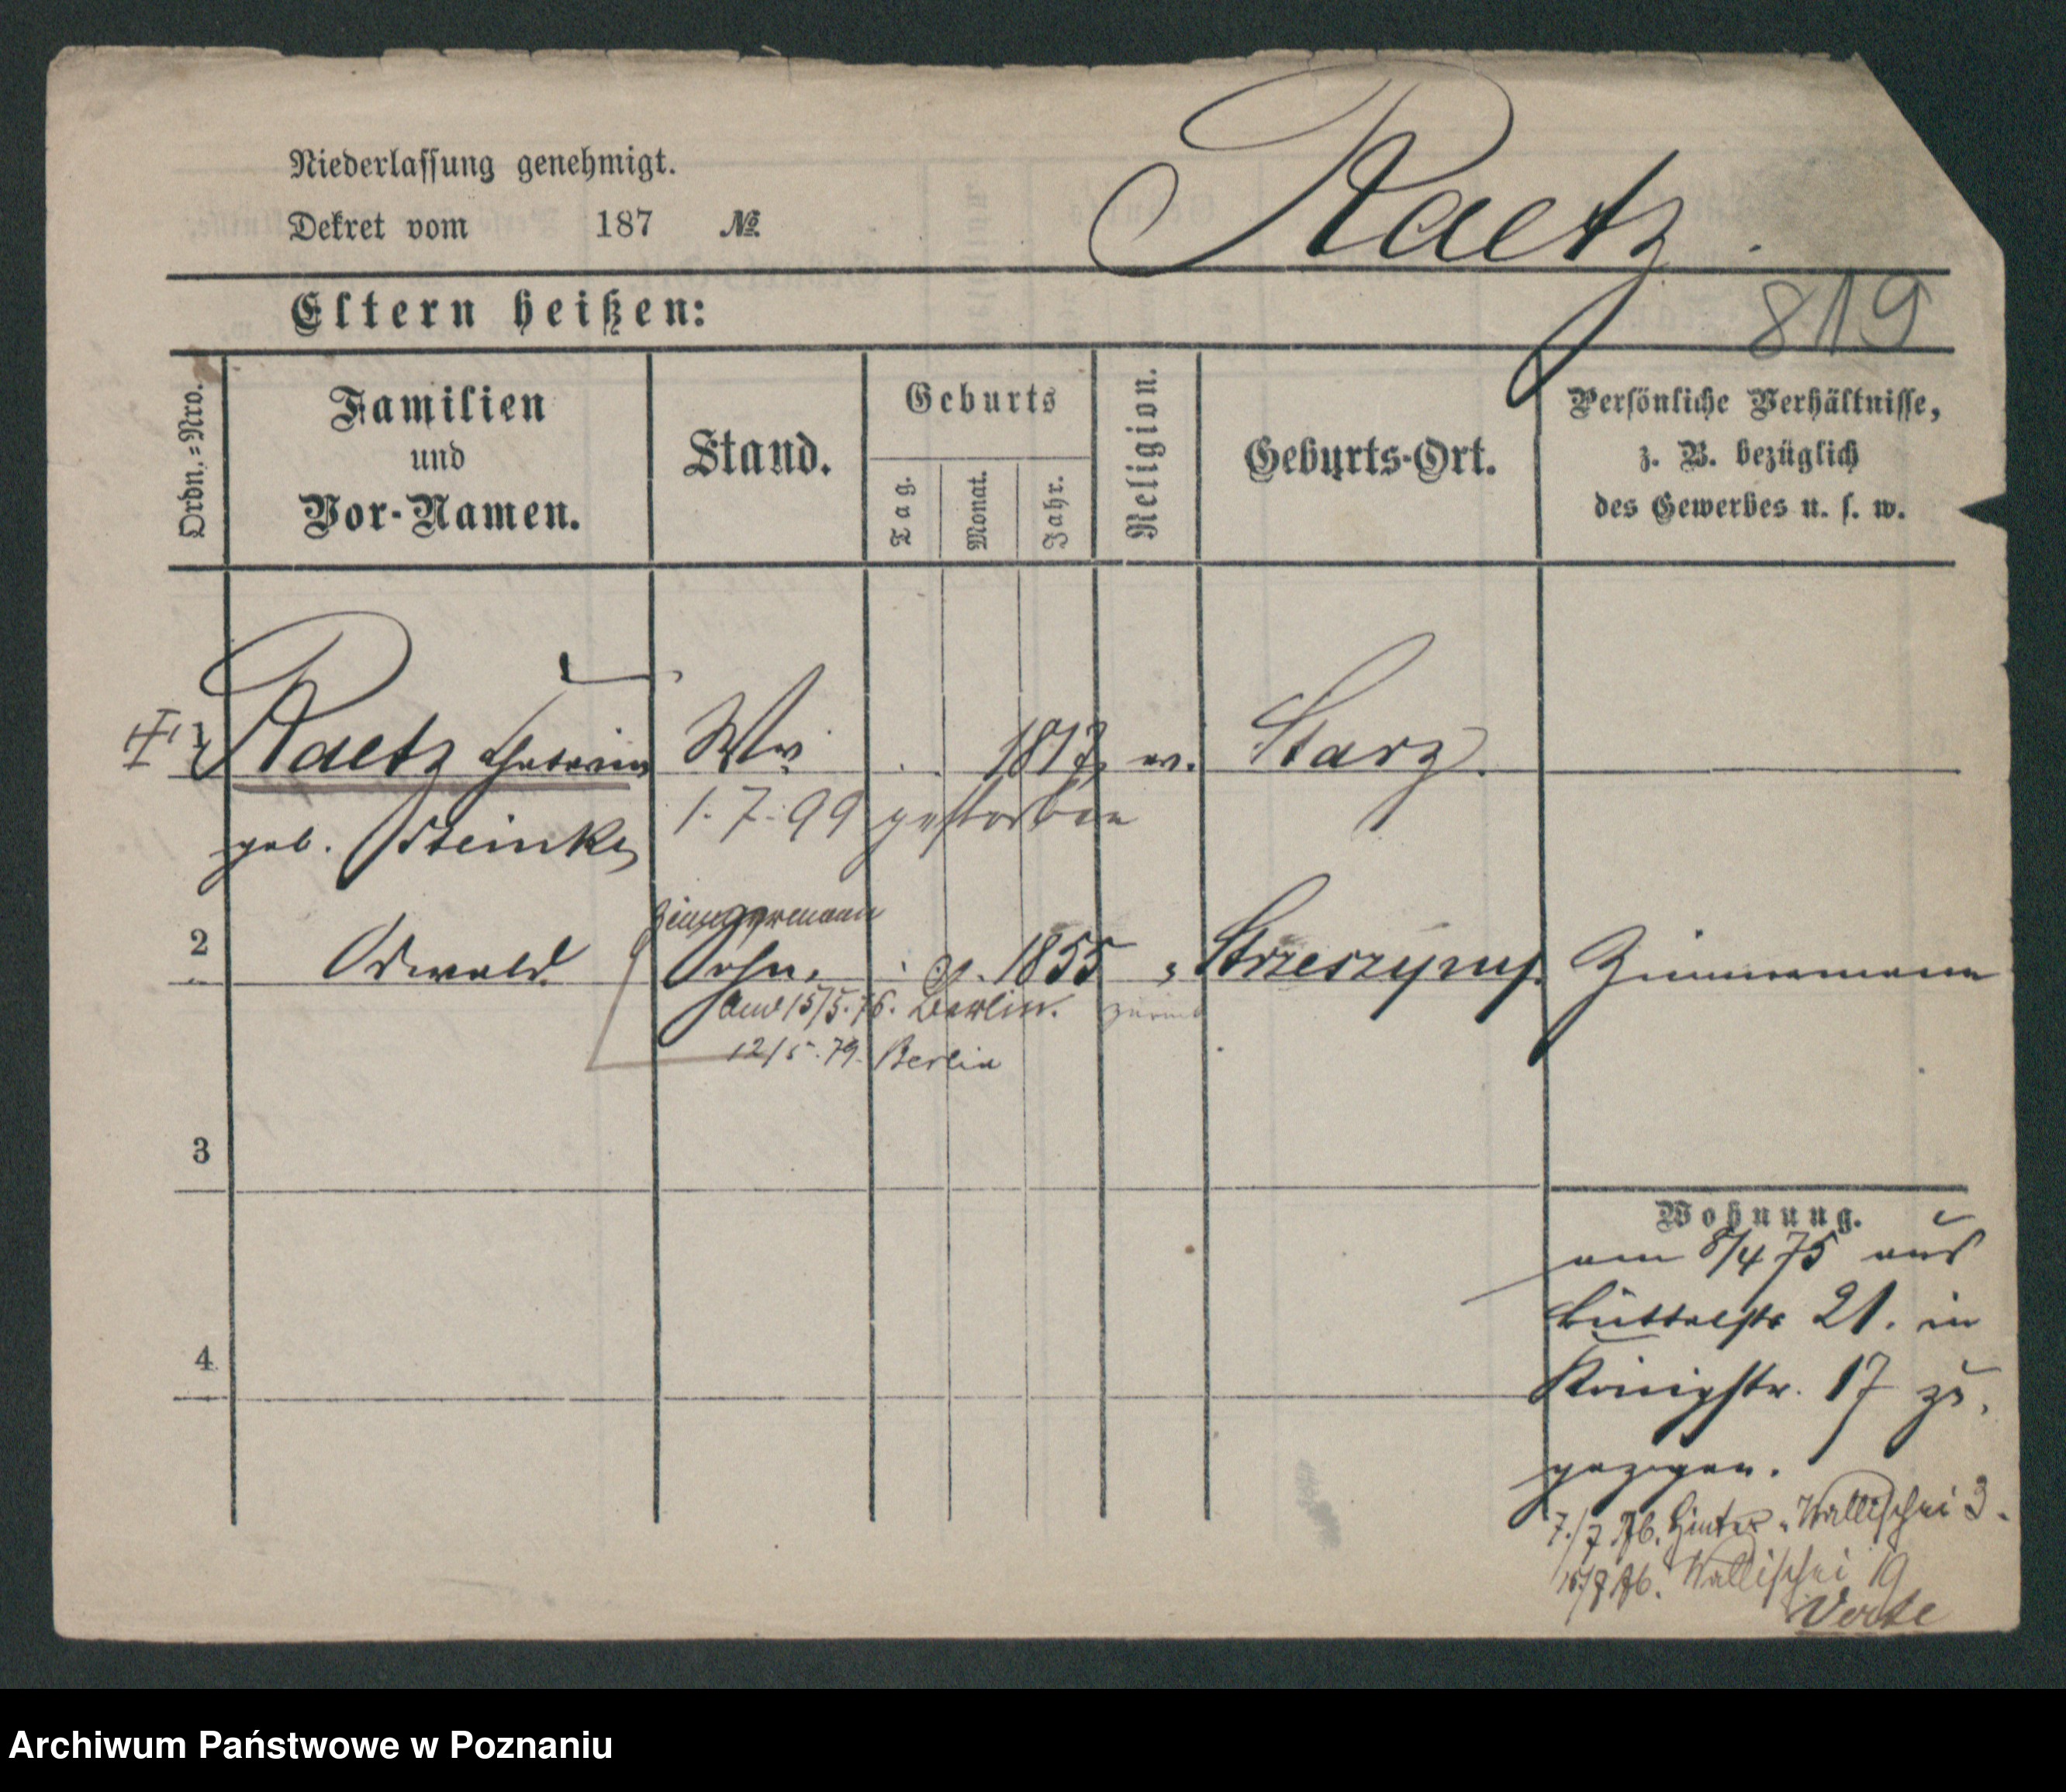 Niederlassung genehmigt.
Dekret vom 187 №
Raetz.
819
Eltern heißen:
Ordn.=Nro.
Familien
und
Vor-Namen.
Stand.
Geburts
Tag.
Monat.
Jahr.
Religion.
Geburts-Ort.
Persönliche Verhältnisse,
z. B. bezüglich
des Gewerbes u. s. w.
1 Raetz Wwe. 1817 ev.
geb. Steinke 1.7.99 gestorben
Zimmermann
2 Oswald Sohn. 1855 Zimmermann
15/5.76. Berlin. zurück
12/5.79. Berlin
3
Wohnung.
am 8/4 75 aus
Büttelstr 21. in
4
Königstr. 17 zu.
gezogen.
7./7 76. Hinter-Wallischei 3.
Wallischei 19
Verte
Archiwum Państwowe w Poznaniu